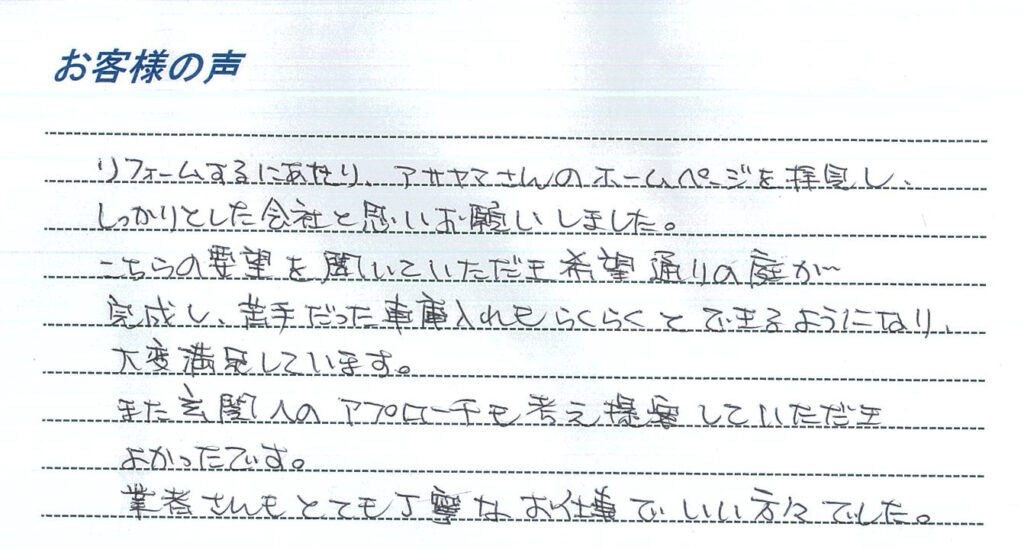 お客様の声
リフォームするにあたり、アサヤマさんのホームページを拝見し、
しっかりとした会社と思いお願いしました。
こちらの要望を聞いていただき希望通りの庭が
完成し、苦手だった車庫入れもらくらくとできるようになり、
大変満足しています。
また玄関へのアプローチも考え提案していただき
よかったです。
業者さんもとても丁寧なお仕事でいい方々でした。